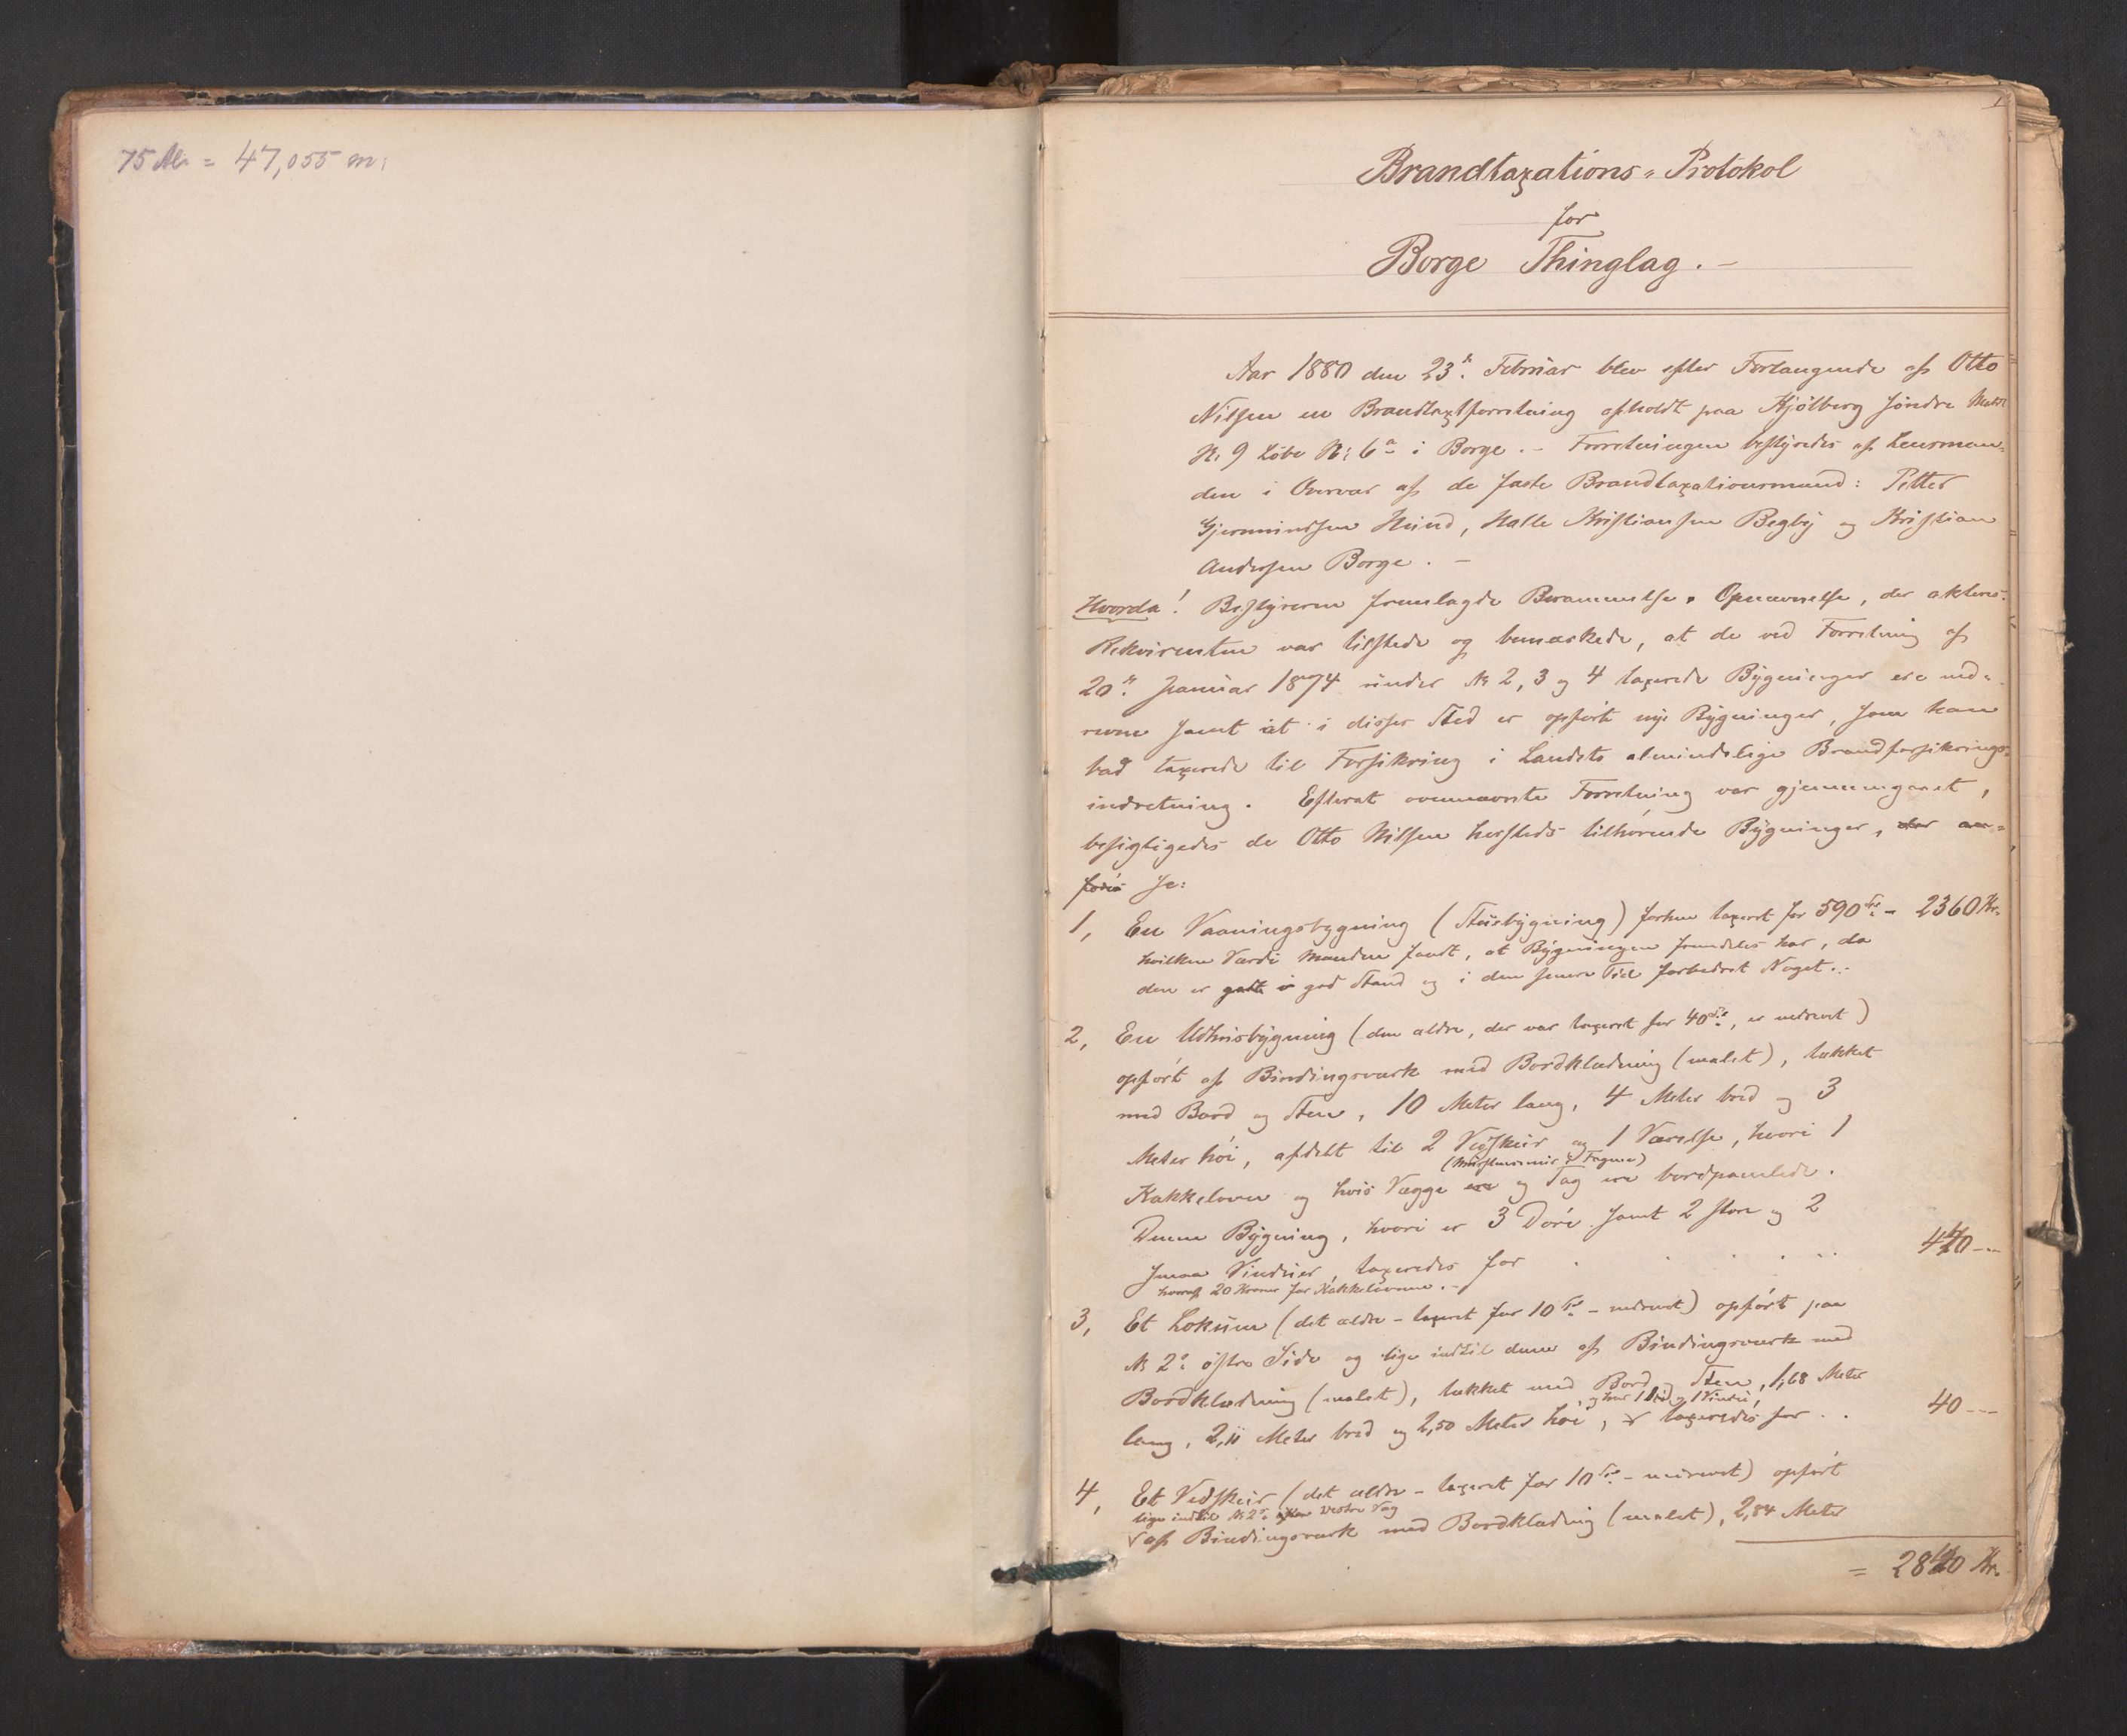 75 Al. = 47,055 m:
1
Brandtaxations-Protokol
for
Borge Thinglag. –
Aar 1880 den 23de Februar blev efter Forlangende af Otto
Nilsen en Brandtaxtforretning afholdt paa Kjølberg søndre Matr.
N: 9 Løbe N: 6a i Borge. – Forretningen bestyredes af Lensman-
den i Overvær af de faste Brandtaxationsmænd: Petter
Gjermundsen Hund, Halle Kristiansen Begby og Kristian
Andersen Borge. –
Hvorda! Bestyreren fremlagde Berammelse & Opnævnelse, der akteres.
Rekvirenten var tilstede og bemærkede, at de ved Forretning af
20de Januar 1874 under № 2, 3 og 4 taxerede Bygninger ere ned-
revne samt at i disses Sted er opført nye Bygninger, som han
bad taxerede til Forsikring i Landets almindelige Brandforsikrings-
indretning. Efterat ovennævnte Forretning var gjennemgaaet,
besigtigedes de Otto Nilsen hersteds tilhørende Bygninger, der an-
føres se:
1, En Vaaningsbygning (Stuebygning) forhen taxeret for 590 Sp. – 2360 Kr.
hvilken Værdi Mændene fandt, at Bygningen fremdeles har, da
den er godt i god Stand og i den senere Tid forbedret Noget. –
2, En Udhusbygning (den ældre, der var taxeret for 40 Sp., er nedrevet)
opført af Bindingsværk med Bordklædning (malet), tækket
med Bord og Sten, 10 Meter lang, 4 Meter bred og 3
Meter høi, afdelt til 2 Vedskur og 1 Værelse, hvori 1
(Murstensmur i Fagene)
Kakkelovn og hvis Vægge ere og Tag ere bordpanelede.
Denne Bygning, hvori er 3 Døre samt 2 store og 2
smaa Vinduer, taxeredes for . . . . . 440 --
hvoraf 20 Kroner for Kakkelovnen. –
3, Et Lokum (det ældre – taxeret for 10 Sp. – nedrevet) opført paa
№ 2s østre Side og lige indtil denne af Bindingsværk med
Bordklædning (malet), tækket med Bord og Sten, 1,68 Meter
og har 1 Dør og 1 Vindu,
lang, 2,11 Meter bred og 2,50 Meter høi, taxeredes for . . 40 --
4, Et Vedskur (det ældre – taxeret for 10 Sp. – nedrevet) opført
lige indtil № 2s vestre Væg
af Bindingsværk med Bordklædning (malet), 2,84 Meter
= 2840 Kr.